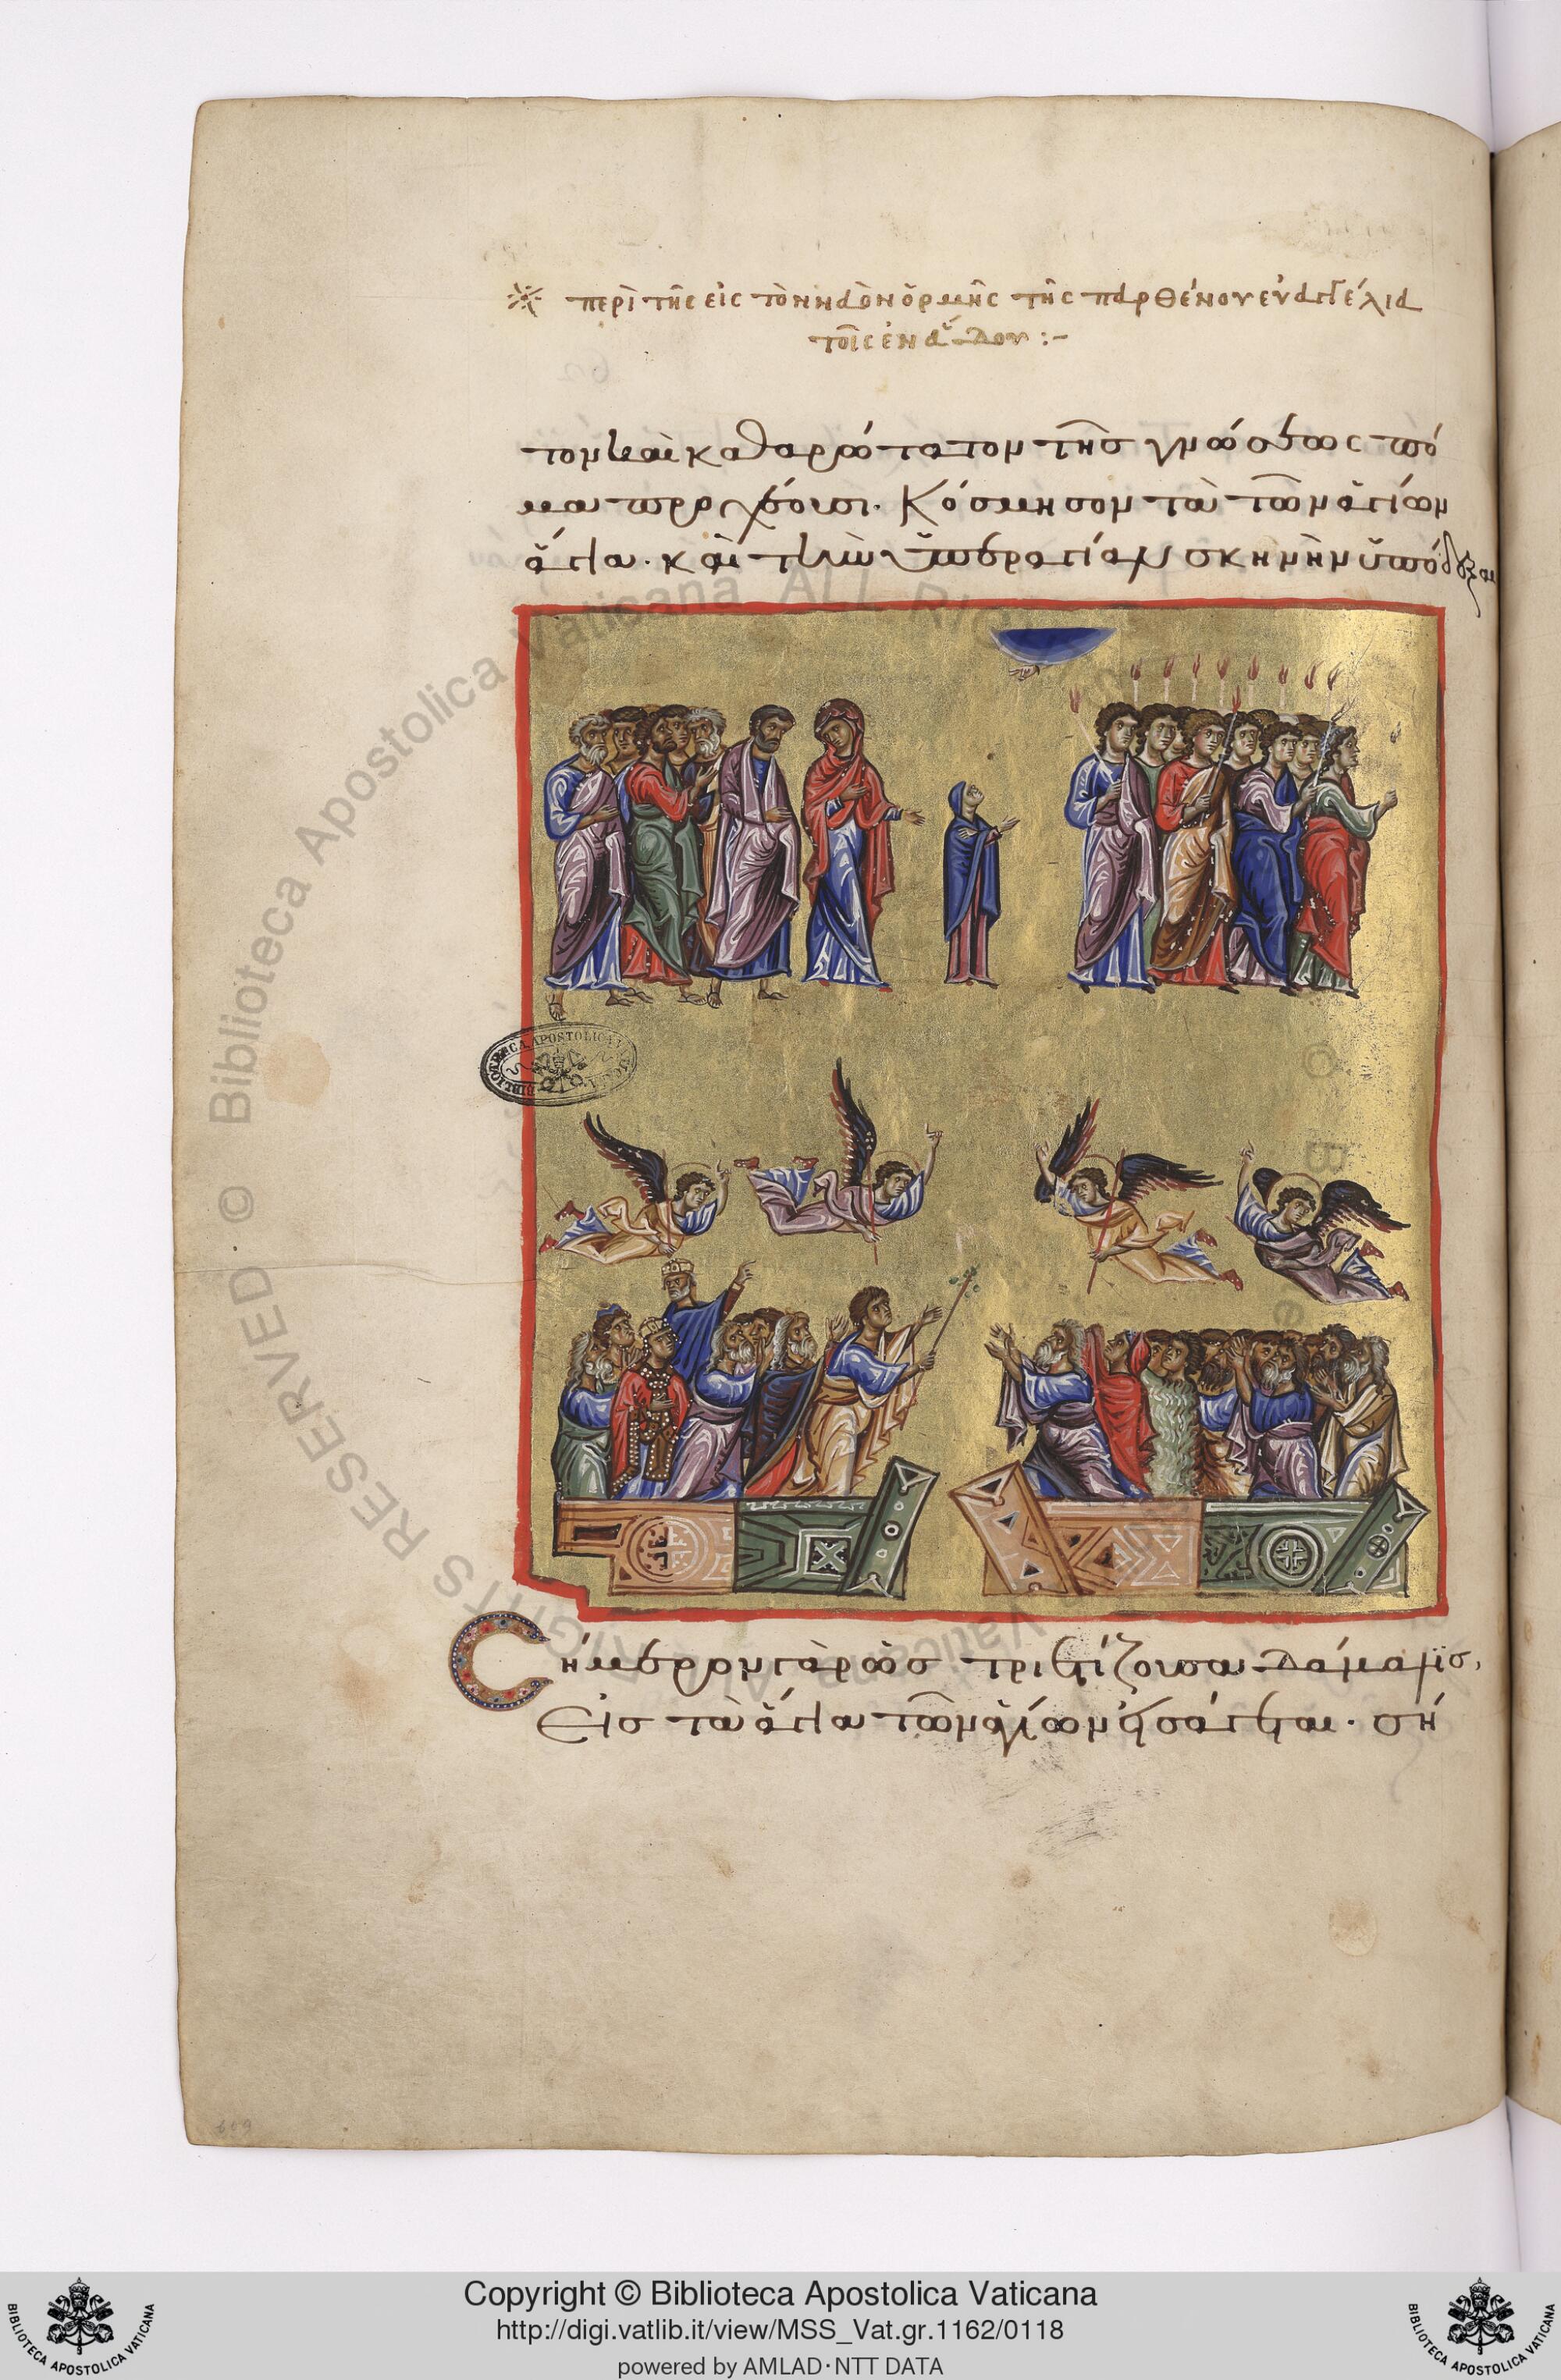 περὶ τῆς εἰς τὸν ναὸν ὁρμῆς τῆς παρθένου εὐαγγέλια
τοῖς ἐν ἅδου :-
τον καὶ καθαρώτατον τῆς γνώσεως πό
μα προχέουσι. Κόσμησον τὰ τῶν ἁγίων
ἅγια. καὶ τὴν ὑπεραγίαν σκηνὴν ὑπόδεξαι
Σήμερον γὰρ ὡς τριετίζουσα δάμαλις,
Εἰς τὰ ἅγια τῶν ἁγίων εἰσάγεται. σή
© Biblioteca Apostolica Vaticana ALL RIGHTS RESERVED
BIBLIOTECA APOSTOLICA VATICANA
Copyright © Biblioteca Apostolica Vaticana
http://digi.vatlib.it/view/MSS_Vat.gr.1162/0118
powered by AMLAD·NTT DATA
BIBLIOTECA APOSTOLICA VATICANA
BIBLIOTECA APOSTOLICA VATICANA